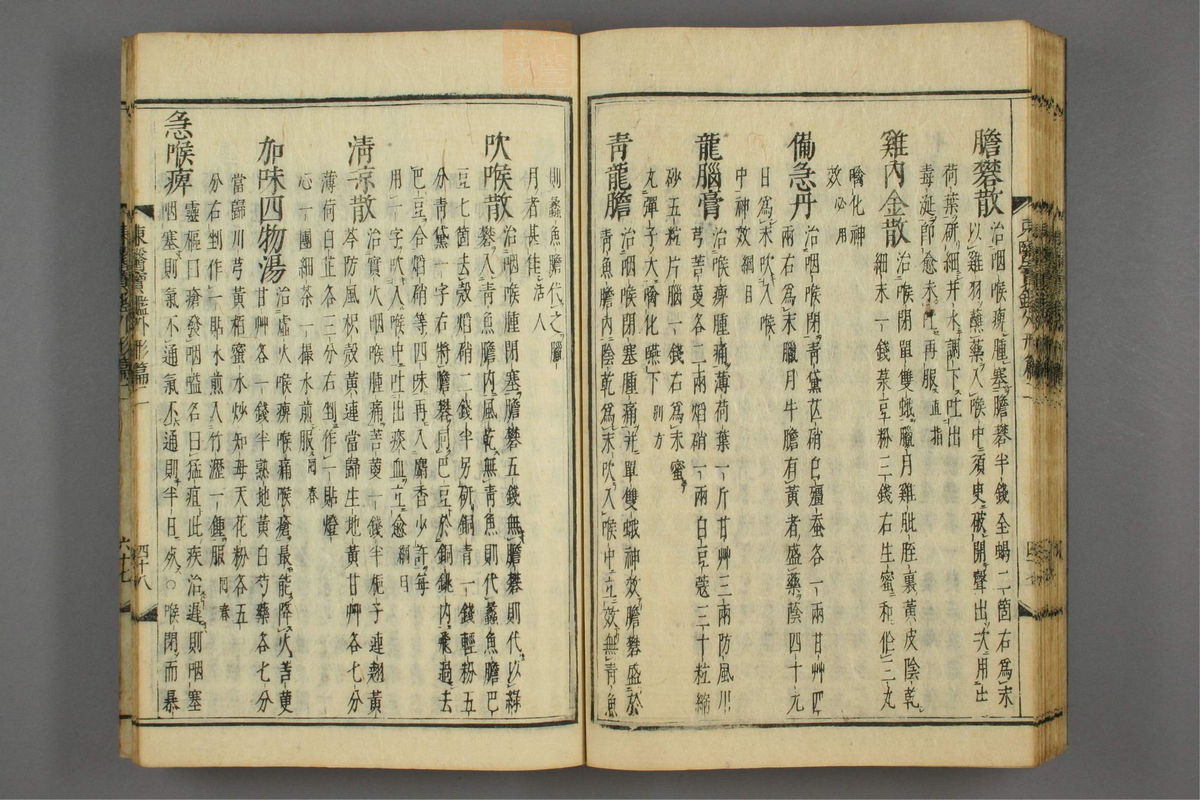 膽礬散治咽喉痺腫塞膽礬半錢全蝎二箇右爲末
以雞羽蘸藥入喉中須臾破開聲出次用生
荷葉硏井水調下吐出
毒涎卽愈未吐再服直指
雞內金散治喉閉單雙蛾臘月雞肶胵裏黃皮陰乾
細末一錢菉豆粉三錢右生蜜和作三丸
噙化神
效必用
備急丹治咽喉閉靑黛芒硝白殭蚕各一兩甘艸四
兩右爲末臘月牛膽有黃者盛藥陰四十九
日爲末吹入喉
中神效綱目
龍腦膏治喉痺腫痛薄荷葉一斤甘艸三兩防風川
芎荳蔲各二兩焰硝一兩白豆蔲三十粒縮
砂五粒片腦一錢右爲末蜜
丸彈子大噙化嚥下別方
靑龍膽治咽喉閉塞腫痛幷單雙蛾神效膽礬盛於
靑魚膽內陰乾爲末吹入喉中立效無靑魚
則蠡魚膽代之臘
月者甚佳活人
吹喉散治咽喉腫閉塞膽礬五錢無膽礬則代以綠
礬入靑魚膽內風乾無靑魚則代蠡魚膽巴
豆七箇去殼焰硝二錢半另硏銅靑一錢輕粉五
分靑黛一字右將膽礬同巴豆於銅銚內飛過去
巴豆合焰硝等四味再入麝香少許每
用一字吹入喉中吐出痰血立愈綱目
淸凉散治實火咽喉腫痛苦莄一錢半梔子連翹黃
芩防風枳殼黃連當歸生地黃甘艸各七分
薄荷白芷各三分右剉作一貼燈
心一團細茶一撮水煎服回春
加味四物湯治虛火喉痺喉痛喉瘡最能降火苦莄
甘艸各一錢半熟地黃白芍藥各七分
當歸川芎黃栢蜜水炒知母天花粉各五
分右剉作一貼水煎入竹瀝一鍾服回春
急喉痺靈樞曰癰發咽嗌名曰猛疽此疾治遲則咽塞
咽塞則氣不通氣不通則半日死○喉閉而暴
東醫寶鑑外形篇二
四十八